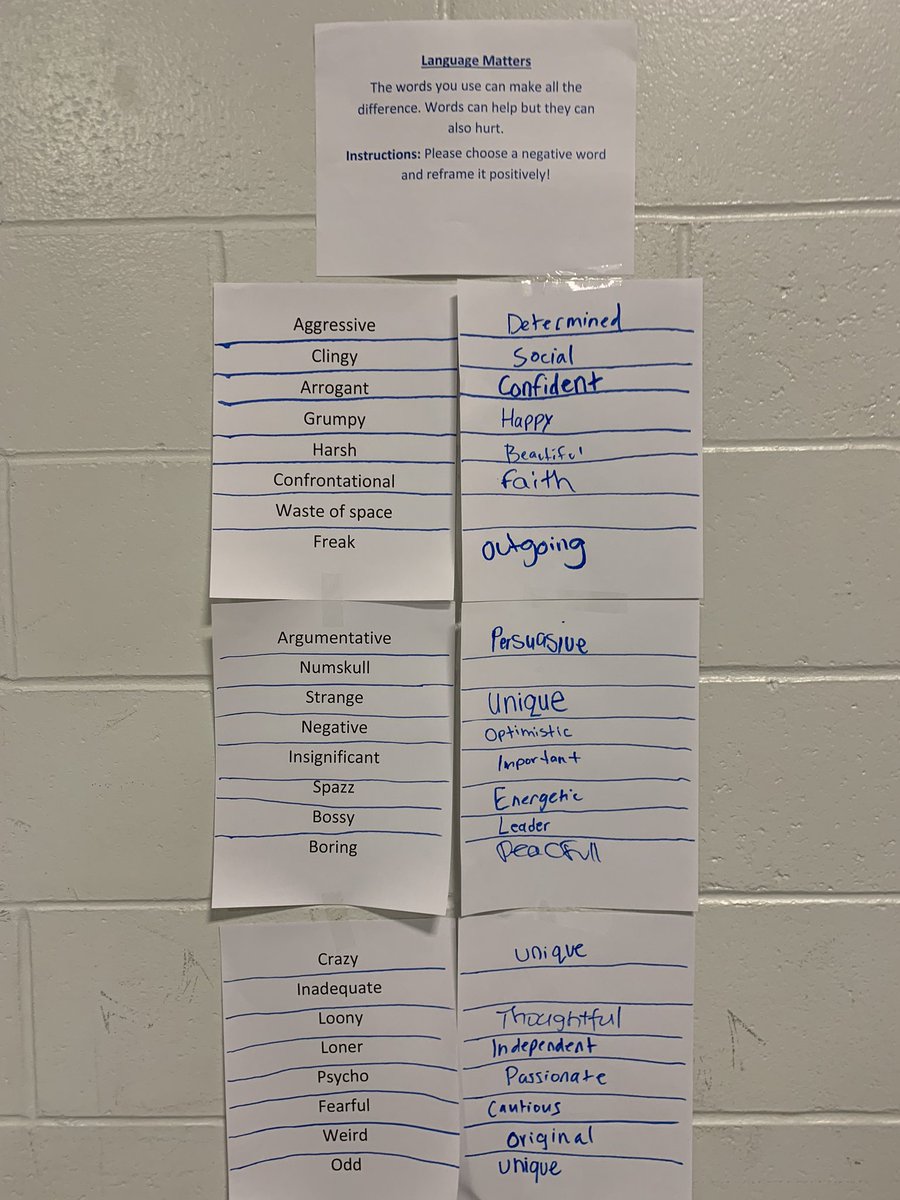 Language Matters
The words you use can make all the
difference. Words can help but they can
also hurt.
Instructions: Please choose a negative word
and reframe it positively!
Aggressive Determined
Clingy Social
Arrogant Confident
Grumpy Happy
Harsh Beautiful
Confrontational Faith
Waste of space
Freak Outgoing
Argumentative Persuasive
Numskull
Strange Unique
Negative Optimistic
Insignificant Important
Spazz Energetic
Bossy Leader
Boring Peacfull
Crazy Unique
Inadequate
Loony Thoughtful
Loner Independent
Psycho Passionate
Fearful Cautious
Weird Original
Odd Unique